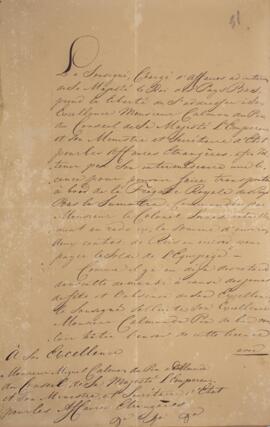 81
Le Soussigné, Chargé d'Affaires ad interim
de Sa Majesté le Roi des Pays Bas,
prend la liberté de s'adresser à Son
Excellence Monsieur Calmon du Pin
du Conseil de Sa Majesté l'Empereur
et Son Ministre et Secrétaire d'Etat
pour les Affaires Etrangères, afin d'ob
tenir par Son intermédiaire une li
cence pour pouvoir faire transporter
à bord de la Frégate Royale des Pays
Bas la Sumatra, Commandée par
Monsieur le Colonel
en rade ici, la somme d'environ
contos de Reis en
payer la Solde de l'Equipage
Comme il y a
cette demande à cause
et l'absence de Son Excellence
le Soussigné Son Excellence
Monsieur Calmon du Pin de
l'envoi de cette licence
A Son Excellence
Monsieur Miguel Calmon du Pin e Almeida
du Conseil de Sa Majesté l'Empereur,
et Son Ministre et Secrétaire d'Etat
pour les Affaires Etrangères